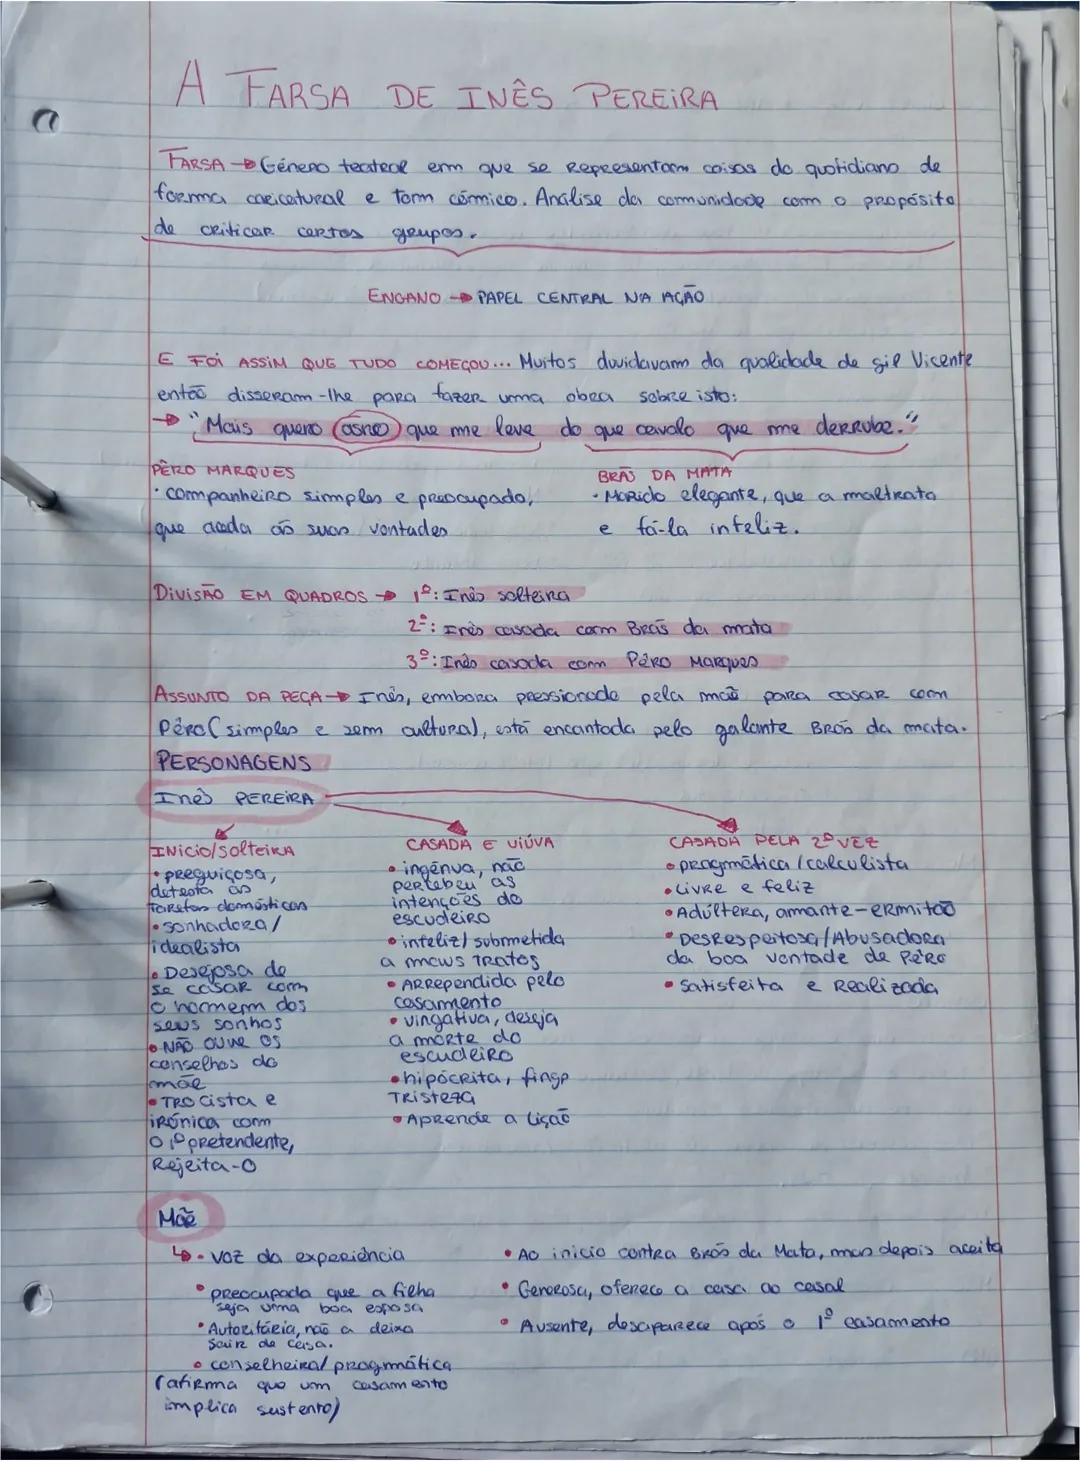 A FARSA DE INÊS PEREIRA
FARSA → Género teatral em que se representam coisas do quotidiano de
forma caricatural e tom cómico. Análise da comunidade com o propósito
de criticar certos grupos.
ENGANO → PAPEL CENTRAL NA AÇÃO
E FOI ASSIM QUE TUDO COMEÇOU... Muitos duvidavam da qualidade de gil Vicente
então disseram-lhe para fazer uma obra sobre isto:
→ "Mais quero asno que me leve do que cavalo que me derrube."
PÊRO MARQUES
· companheiro simples e preocupado,
que aceda ás suas vontades
BRÁS DA MATA
· Marido elegante, que a maltrata
e fá-la infeliz.
DIVISÃO EM QUADROS → 1º: Inês solteira
2º: Inês casada com Brás da mata
3º: Inês casada com Pêro Marques
ASSUNTO DA PEÇA → Inês, embora pressionada pela mãe para casar com
Pêro (simples e sem cultura), está encantada pelo galante Brás da mata.
PERSONAGENS
Inês PEREIRA
INÍCIO/SOLTEIRA
• preguiçosa,
detesta as
tarefas domésticas
• sonhadora/
idealista
• Desejosa de
se casar com
o homem dos
seus sonhos
• NÃO OUVE OS
conselhos da
mãe
• TROCISTA e
irónica com
o 1º pretendente,
Rejeita-o
CASADA E VIÚVA
• ingénua, não
percebeu as
intenções do
escudeiro
• infeliz/submetida
a maus TRATOS
• ARREPENDIDA pelo
casamento
• vingativa, deseja
a morte do
escudeiro
• hipócrita, finge
TRISTEZA
• Aprende a lição
CASADA PELA 2ª VEZ
• pragmática/calculista
• Livre e feliz
• Adúltera, amante-ermitão
• DESRESPEITOSA/Abusadora
da boa vontade de Pêro
• satisfeita e Realizada
Mãe
↳ • voz da experiência
• preocupada que a filha
seja uma boa esposa
• Autoritária, não a deixa
sair de casa.
• conselheira/pragmática
(afirma que um casamento
implica sustento)
• Ao inicio contra Brás da Mata, mas depois aceita
• Generosa, oferece a casa ao casal
• Ausente, desaparece após o 1º casamento